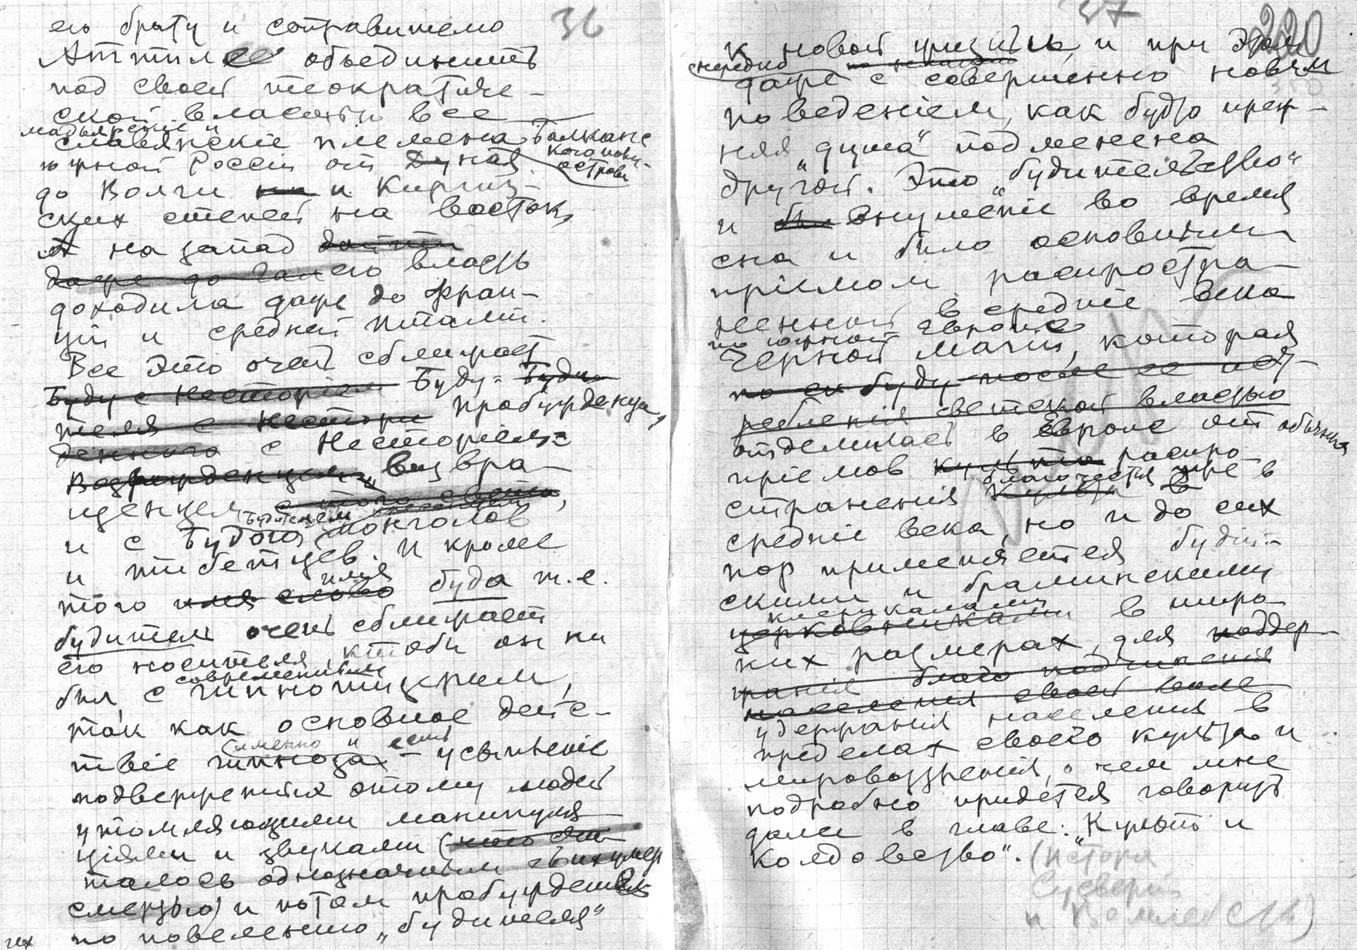 36
его брату и соправителю
Аттиле объединить
под своей теократиче-
ской властью все
мадьярские и
славянские племена Балканс
кого полу-
острова
южной России от Дуная
до Волги на и Киргиз-
ских степей на востоке,
А на запад
даже до его власть
доходила даже до Фран-
ции и средней Италии.
Все это очень сближает
Буду с Несторием Буду-
теля с Нестори пробужденца,
с Несторием-
возрожденцем, воз вра-
щенцем с того света,
Будителем
и с Будою монголов
и тибетцев. И кроме
имя
того имя слово буда т.е.
будитель очень сближает
его носителя, кто бы он ни
современным
был, с гипнотизером,
так как основное дейс-
именно и есть
твие гипноза - усыпление
подвергшихся этому людей
утомляющими манипуля-
циями и звуками (что счи-
талось однозначным с их умер
смертью) и потом пробуждение их
по повелению „будителя“
37
220
к новой жизни и при этом
нередко
даже с совершенно новым
поведением, как будто преж-
няя „душа“ подменена
другой. Это „будительство“
и бы внушение во время
сна и было основным
приемом распростра-
ненной в средние века
по южной Европе
Черной магии, которая
отделилась в Европе от обычных
приемов культа распро-
благочестия
странения культа уже в
средние века, но и до сих
пор применяется буддий-
скими и браминскими
клерикалами
церковниками в широ-
ких размерах, для поддер-
жания благо подчинения
населения своей воле
удержания населения в
пределах своего культа и
мировоззрения, о чем мне
подробно придется говорить
далее в главе: „Культ и
колдовство“.
(История
Суеверий
и Волшебств)